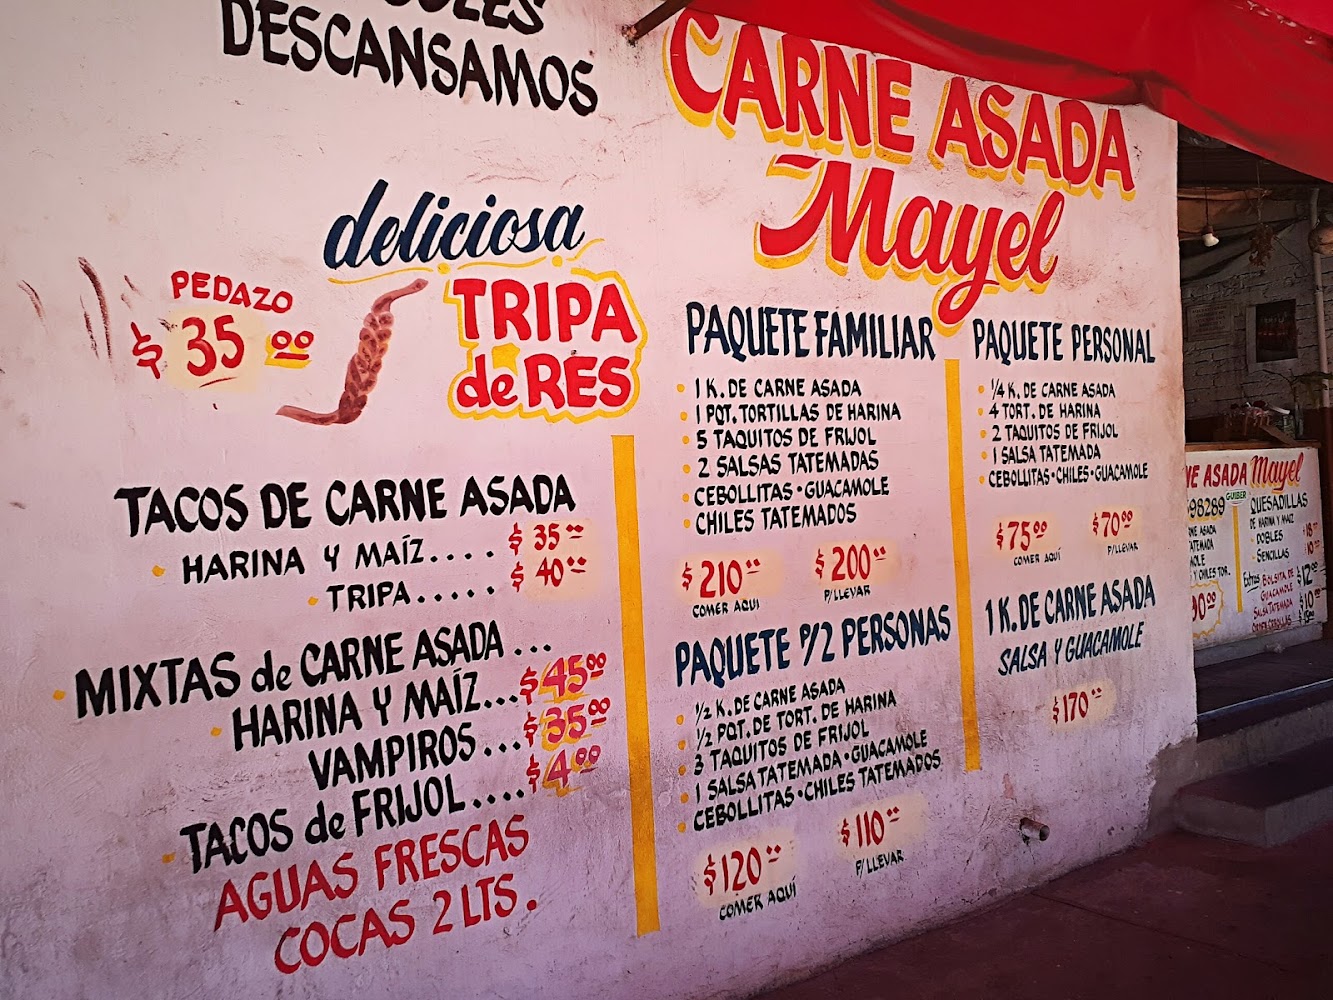 DESCANSAMOS
CARNE ASADA
Mayel
deliciosa
TRIPA
de RES
PEDAZO
$35.00
TACOS DE CARNE ASADA
HARINA Y MAÍZ.... $35.00
TRIPA..... $40.00
MIXTAS de CARNE ASADA ...
HARINA Y MAÍZ...$45.00
VAMPIROS...$35.00
TACOS de FRIJOL....$4.00
AGUAS FRESCAS
COCAS 2 LTS.
PAQUETE FAMILIAR
1 K. DE CARNE ASADA
1 PQT. TORTILLAS DE HARINA
5 TAQUITOS DE FRIJOL
2 SALSAS TATEMADAS
CEBOLLITAS • GUACAMOLE
CHILES TATEMADOS
$210.00 $200.00
COMER AQUÍ P/LLEVAR
PAQUETE P/2 PERSONAS
1/2 K. DE CARNE ASADA
1/2 PQT. DE TORT. DE HARINA
3 TAQUITOS DE FRIJOL
1 SALSA TATEMADA • GUACAMOLE
CEBOLLITAS • CHILES TATEMADOS
$120.00 $110.00
COMER AQUÍ P/LLEVAR
PAQUETE PERSONAL
1/4 K. DE CARNE ASADA
4 TORT. DE HARINA
2 TAQUITOS DE FRIJOL
1 SALSA TATEMADA
CEBOLLITAS • CHILES • GUACAMOLE
$75.00 $70.00
COMER AQUÍ P/LLEVAR
1 K. DE CARNE ASADA
SALSA Y GUACAMOLE
$170.00
ASADA Mayel
98289 GUIBER
QUESADILLAS
DE HARINA Y MAIZ
DOBLES
SENCILLAS
ASADA
Y CHILES TOR.
Extras BOLSITA DE $12.00
GUACAMOLE
SALSA TATEMADA $10